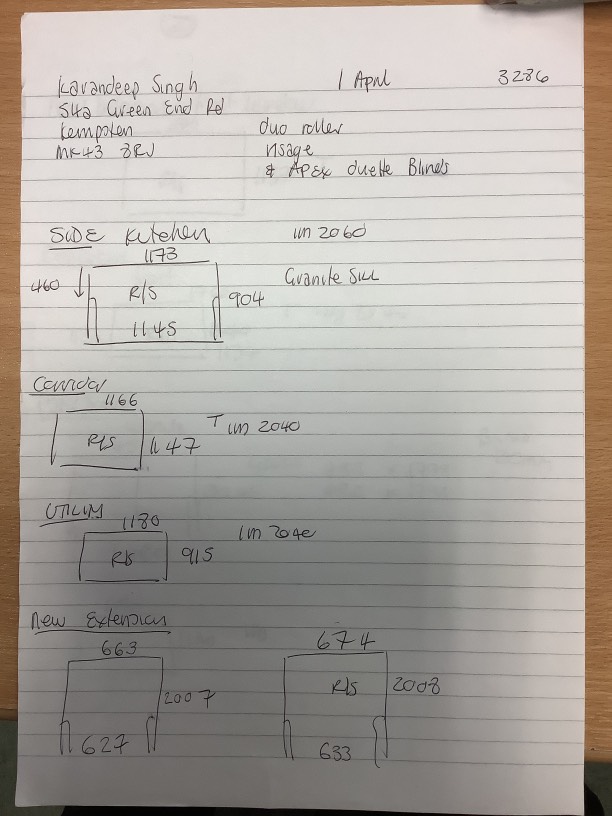 Karandeep Singh 1 April 3286
542 Green End Rd
Kempston duo roller
MK43 8RJ Visage
& Apex duette Blinds
SIDE Kitchen Um 2060
1173
460 R/S 904 Granite Sill
1145
Corridor
1166
R/S 1147 T Um 2040
UTILITY
1180 Um 2040
R/S 915
New Extension
663 674
2007 R/S 2008
627 633